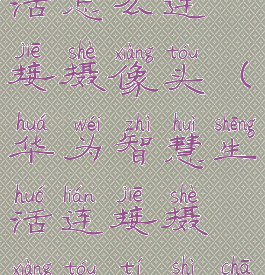 活怎么连
jiē shè xiàng tóu
接摄像头（
huá wéi zhì huì shēng
华为智慧生
huó lián jiē shè
活连接摄
xiàng tóu tí shì chā